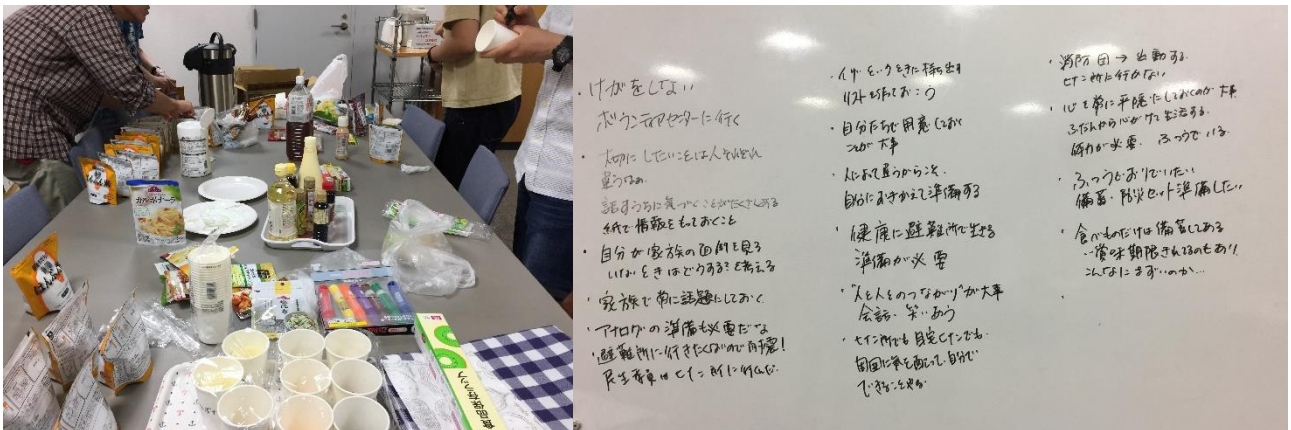 カルボナーラ
食品保存ラップ
・けがをしない
ボランティアセンターに行く
・大切にしたいことは人それぞれ
違うなあ
話すうちに気づくことがたくさんある
紙で情報をもっておくこと
・自分が家族の面倒を見る
いないときはどうする?と考える
・家族で常に話題にしておく
・アナログの準備も必要だな
避難所に行きたくないので耐震!
民生委員はヒナン所に行くんだ
・イザというときに持ち出す
リストを立てておこう
・自分たちで用意しておく
ことが大事
・人によって違うからこそ、
自分におきかえて準備する
・健康に避難所で生きる
準備が必要
・"人と人とのつながり"が大事
会話・笑いあう
・ヒナン所でも自宅ヒナンでも
周囲に気を配って、自分で
できることをやる
・消防団→出動する
ヒナン所に行かない
・心を常に平穏にしておくのが大事
ふだんから心がけて生活する
能力が必要 ふつうでいる
・ふつうどおりでいたい
備蓄・防災セット準備したい
・食べものだけは備蓄してある
賞味期限きれてるのもあり
こんなにまずいのか…